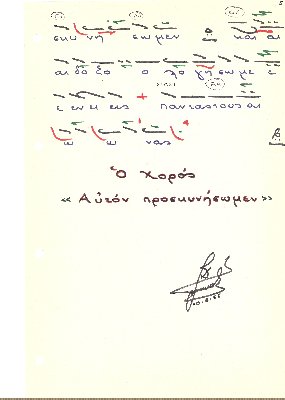 σκυ νη σωμεν και αι
αι δο ξο ο λο γη σωμε ε
ε εν εις παντας τους αι
ω ω νας
Ὁ Χορός
« Αὐτόν προσκυνήσωμεν»